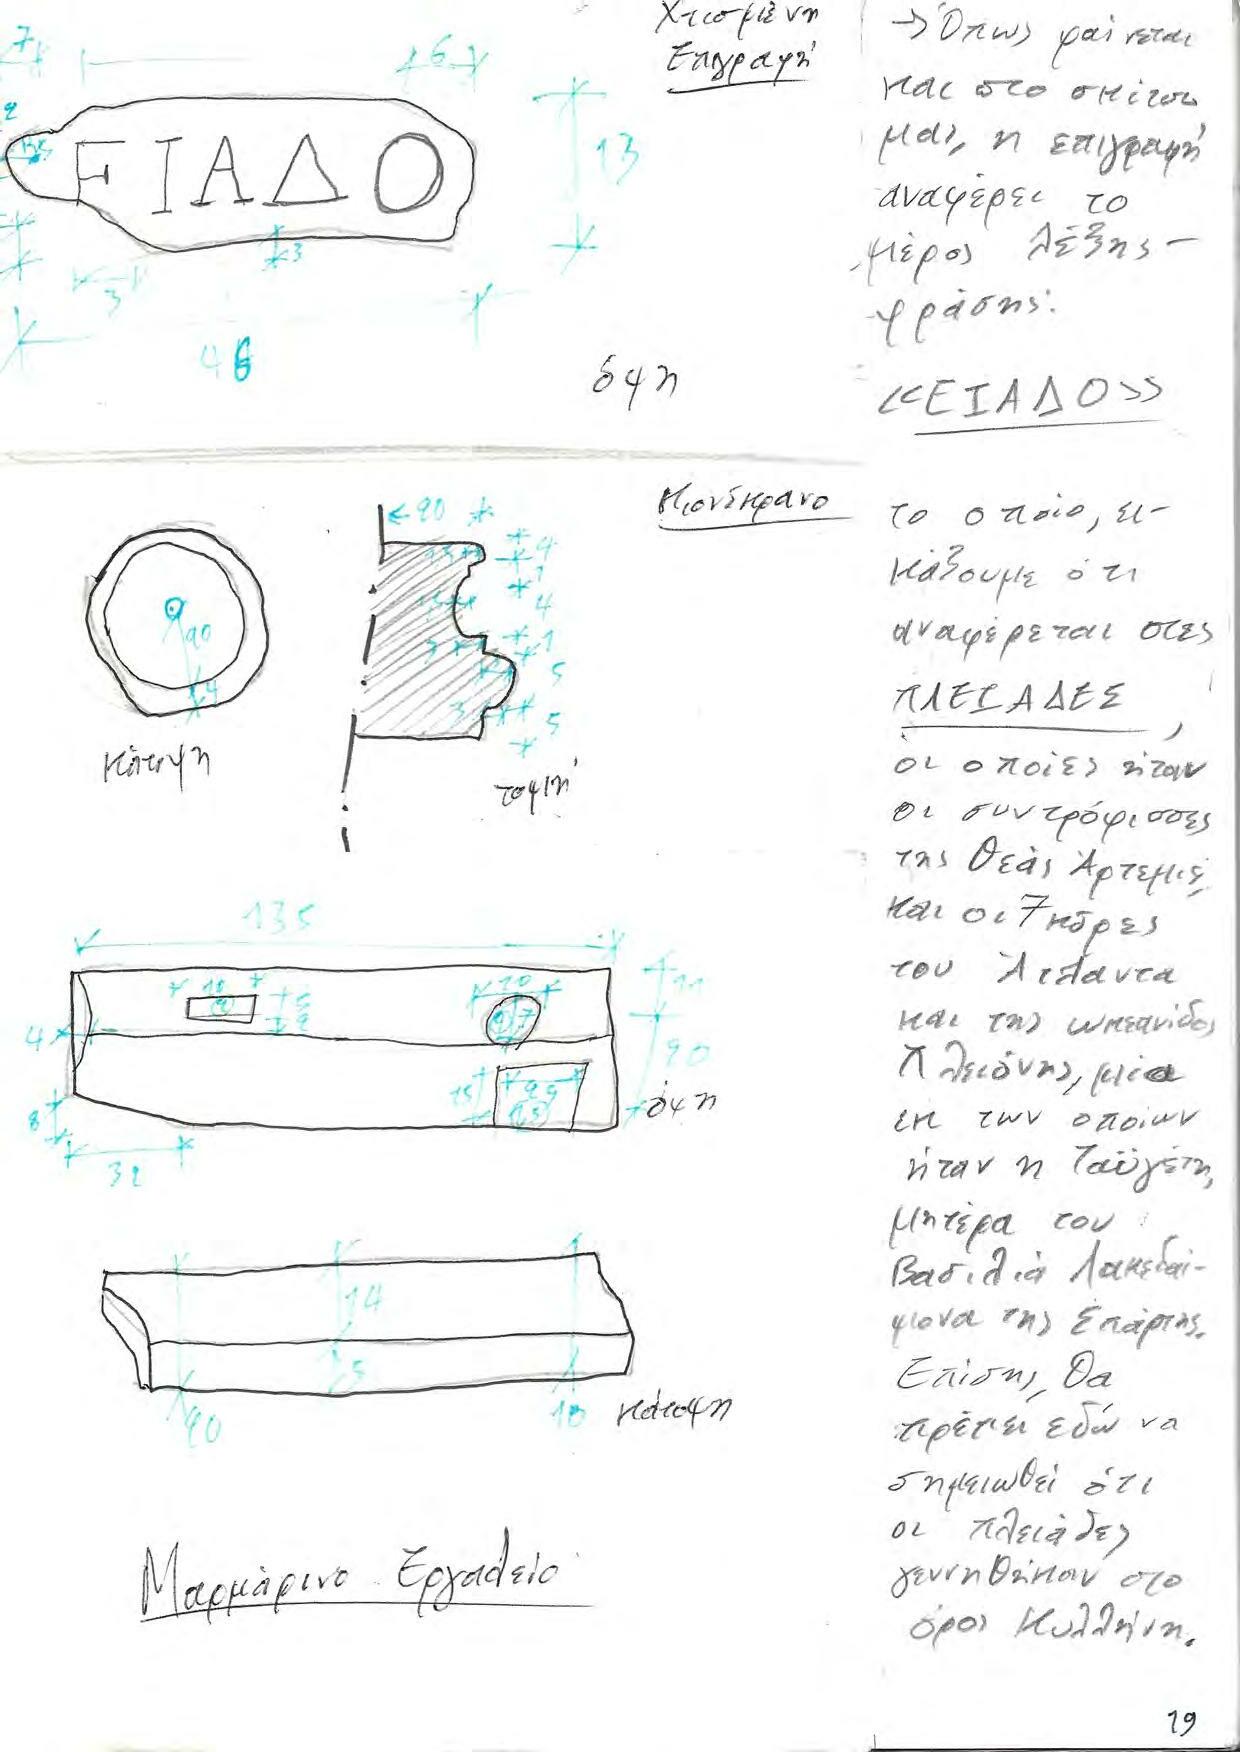 Χτισμένη
Επιγραφή
7
6
2
ΕΙΑΔΟ
13
3
3
46
όψη
Κιονόκρανο
20
4
1
4
1
3
5
3
5
20
4
κάτοψη
τομή
135
10
20
11
4
7
20
15
8
32
όψη
14
5
20
10
κάτοψη
Μαρμάρινο Εργαλείο
→Όπως φαίνεται
και στο σκίτσο
μας, η επιγραφή
αναφέρει το
μέρος λέξης-
φράσης:
<<ΕΙΑΔΟ>>
το οποίο, ει-
κάζουμε ότι
αναφέρεται στις
ΠΛΕΙΑΔΕΣ,
οι οποίες ήταν
οι συντρόφισσες
της Θεάς Άρτεμις,
και οι 7 κόρες
του Άτλαντα
και της ωκεανίδος
Πλειόνης, μία
εκ των οποίων
ήταν η Ταϋγέτη,
μητέρα του
Βασιλιά Λακεδαί-
μονα της Σπάρτης.
Επίσης, θα
πρέπει εδώ να
σημειωθεί ότι
οι πλειάδες
γεννηθήκαν στο
όρος Κυλλήνη.
19